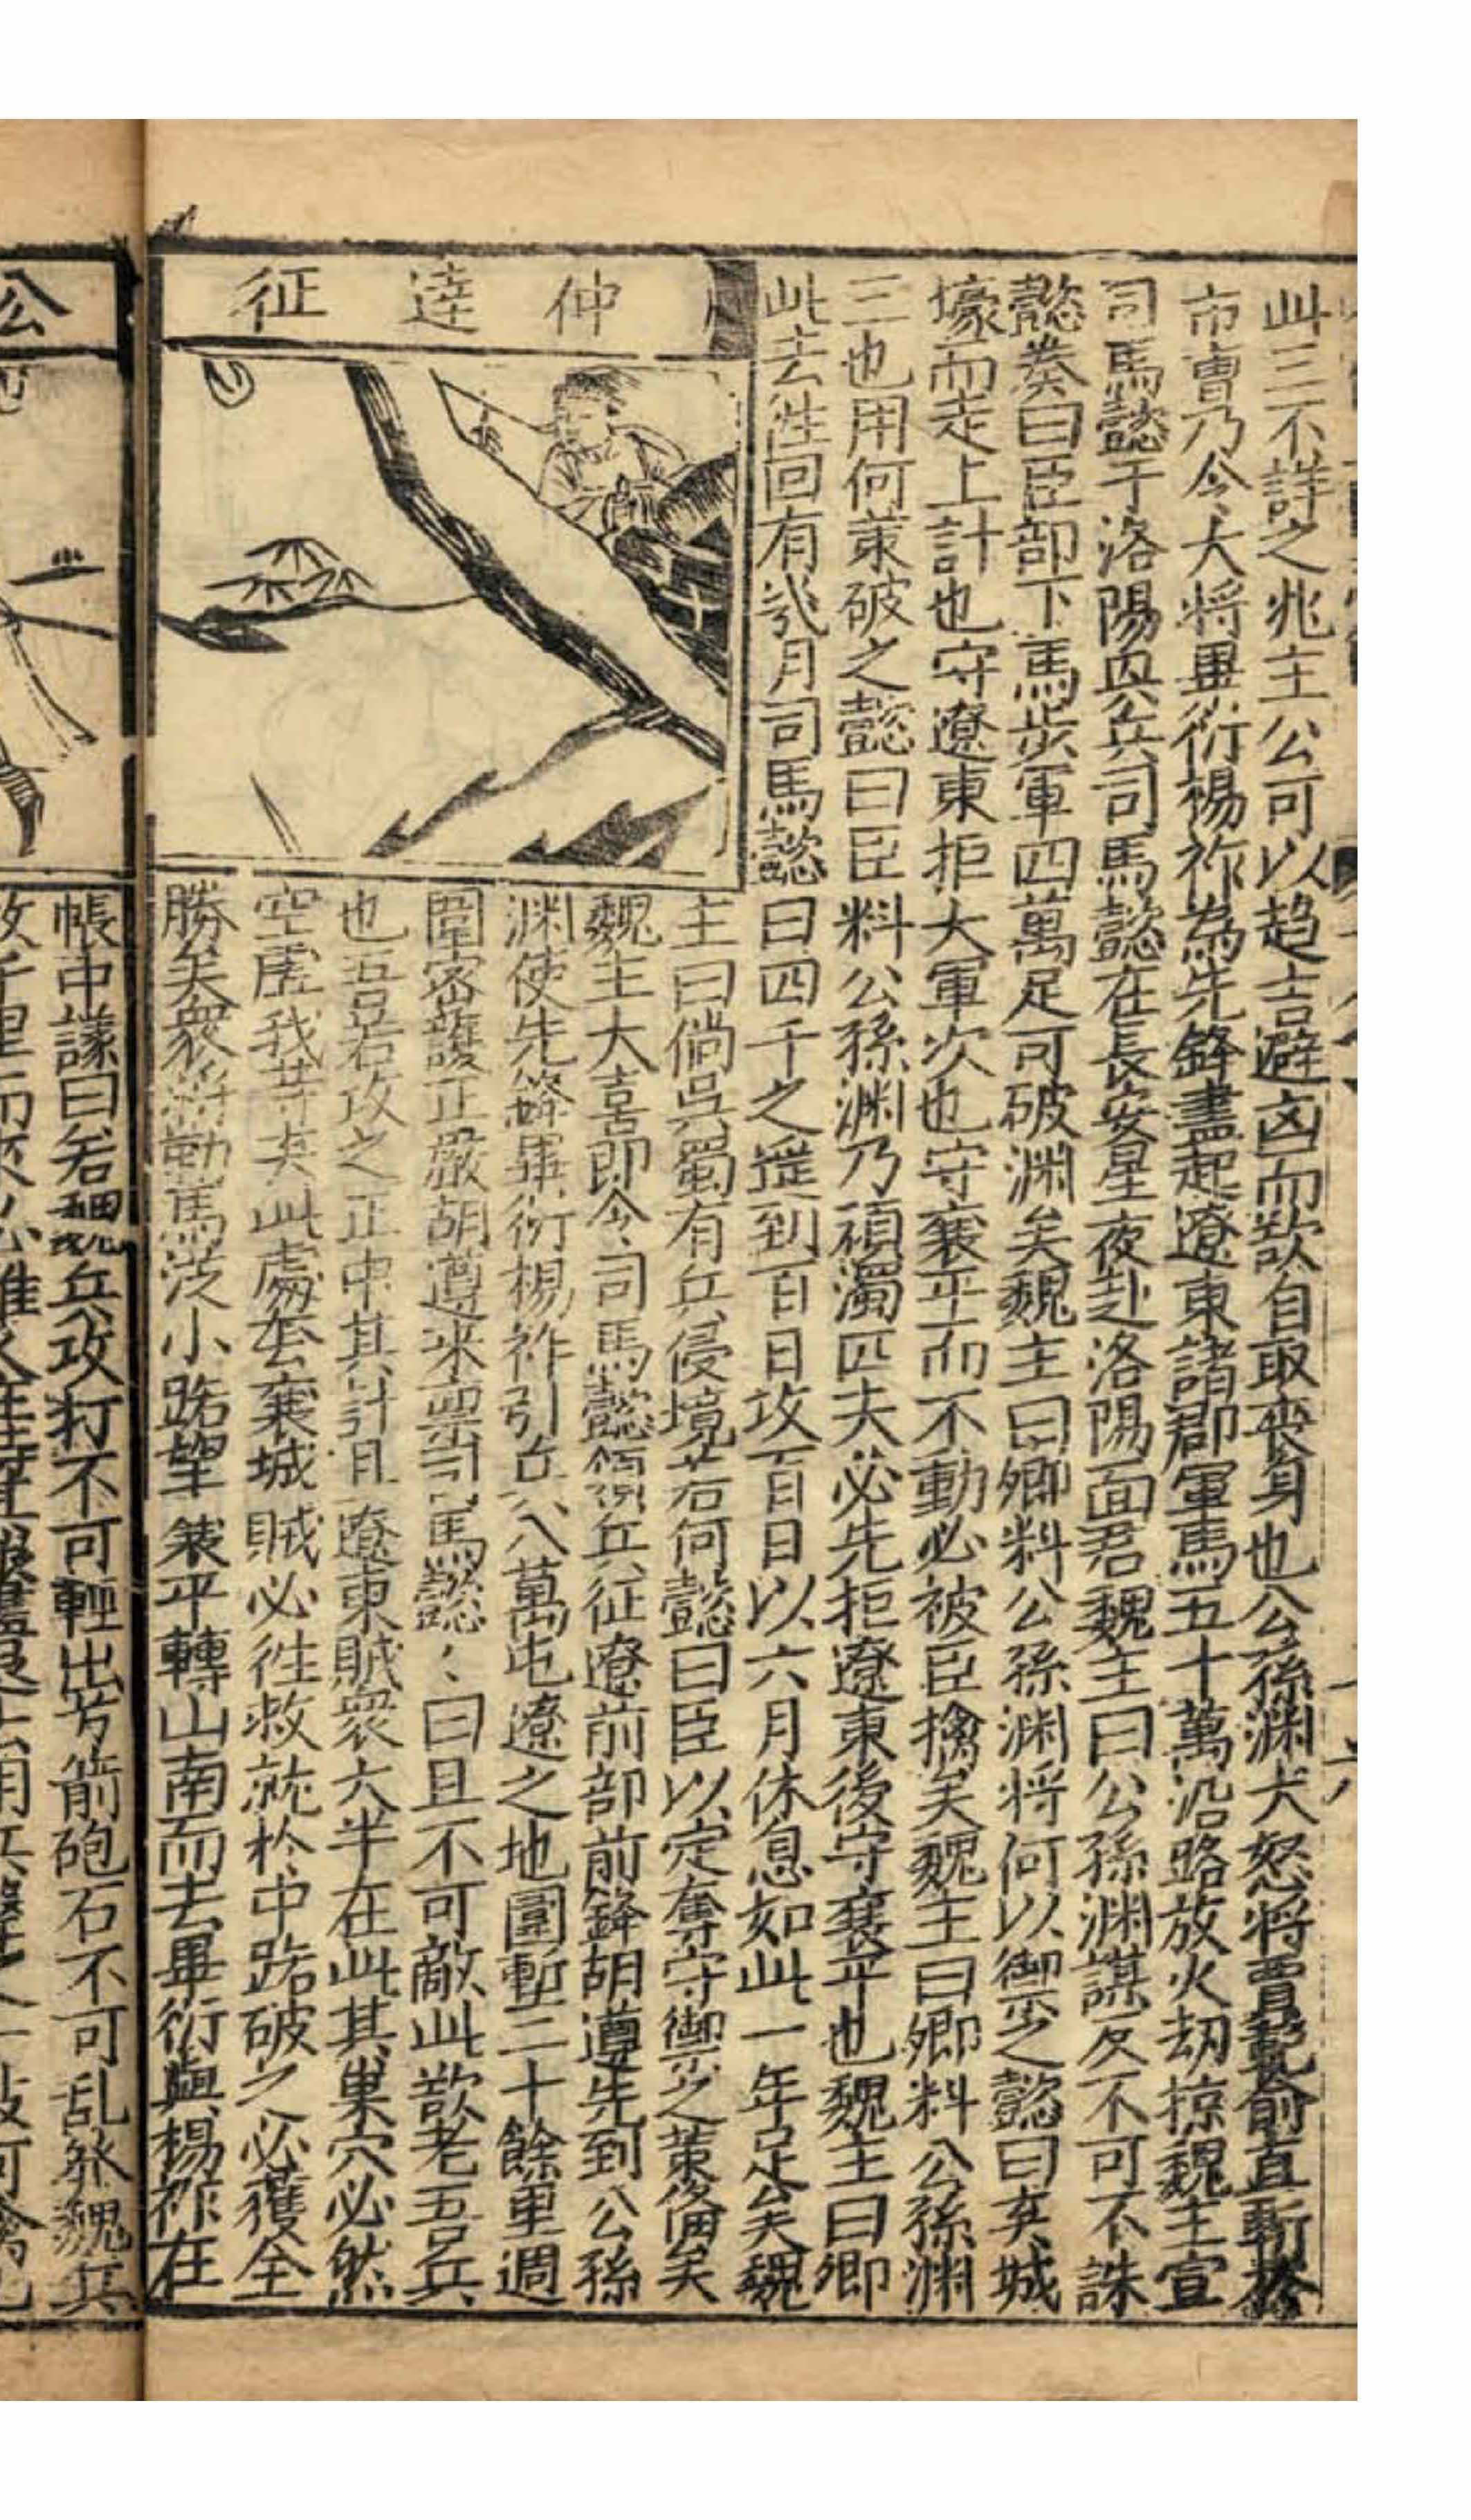 此三不詳之兆主公可以趋吉避凶而欲自取喪身也公孫渊大怒將賈範俞直斬於
市曹乃令大将畢衍楊祚為先鋒盡起遼東諸郡軍馬五十萬沿路放火刼掠魏主宣
司馬懿于洛陽興兵司馬懿在長安星夜赴洛陽面君魏主曰公孫渊謀反不可不誅
懿奏曰臣部下馬步軍四萬足可破渊矣魏主曰卿料公孫渊将何以禦之懿曰弃城
壕而走上計也守遼東拒大軍次也守襄平而不動必被臣擒矣魏主曰卿料公孫渊
三也用何策破之懿曰臣料公孫渊乃頑濁匹夫必先拒遼東後守襄平也魏主曰卿
此去往回有幾月司馬懿曰四千之遥到百日攻百日以六月休息如此一年足矣魏
仲達征
主曰倘吳蜀有兵侵境若何懿曰臣以定奪守禦之策俻矣
魏主大喜即令司馬懿領兵征遼前部前鋒胡遵先到公孫
渊使先鋒畢衍楊祚引兵八萬屯遼之地圍塹二十餘里週
圍密護正嚴胡遵來禀司馬懿〻曰且不可敵此欺老吾兵
也吾若攻之正中其計且遼東賊衆大半在此其巢穴必然
空虛我等弃此處去襄城賊必徃救就於中路破之必獲全
勝矣衆將勒馬從小路望襄平轉山南而去畢衍與楊祚在
帳中議曰若魏兵攻打不可輕出弓箭砲石不可乱發魏兵
公